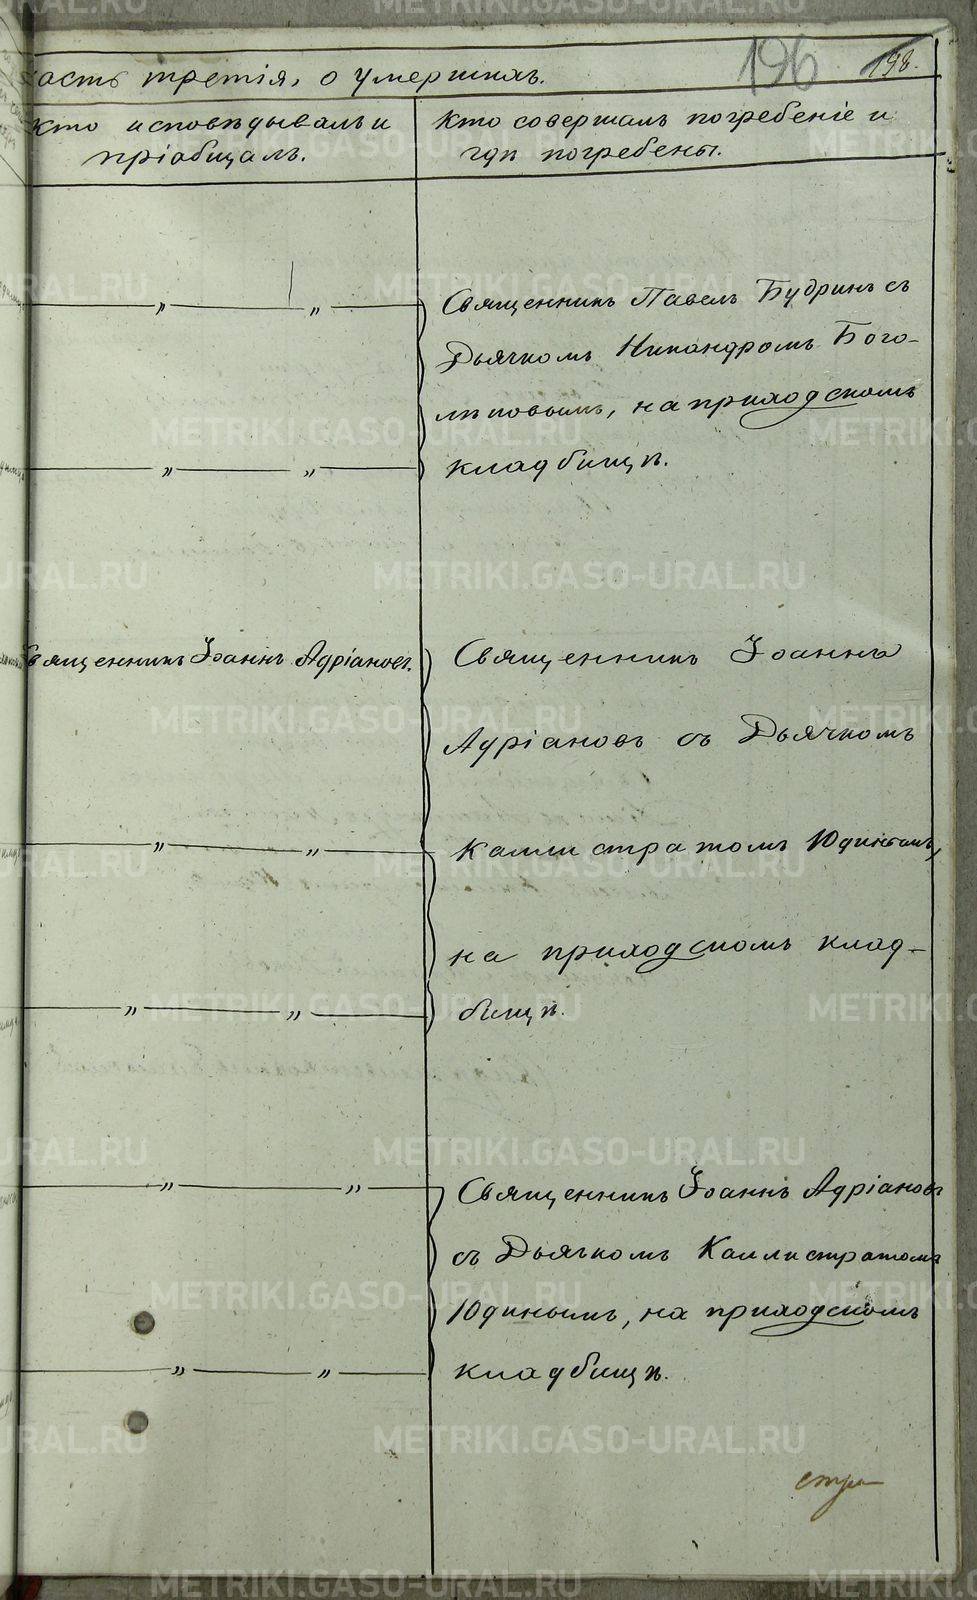 196 198.
часть третія, о умершихъ.
Кто исповѣдывалъ и
пріобщалъ.
Кто совершалъ погребеніе и
гдѣ погребены.
Священникъ Павелъ Будринъ съ
Дьячкомъ Никандромъ Бого-
лѣповымъ, на приходскомъ
кладбищѣ.
Священникъ Іоаннъ Адріановъ.
Священникъ Іоаннъ
Адріановъ съ Дьячкомъ
Каллистратомъ Юдинымъ,
на приходскомъ клад-
бищѣ.
Священникъ Іоаннъ Адріановъ
съ Дьячкомъ Каллистратомъ
Юдинымъ, на приходскомъ
кладбищѣ.
METRIKI.GASO-URAL.RU